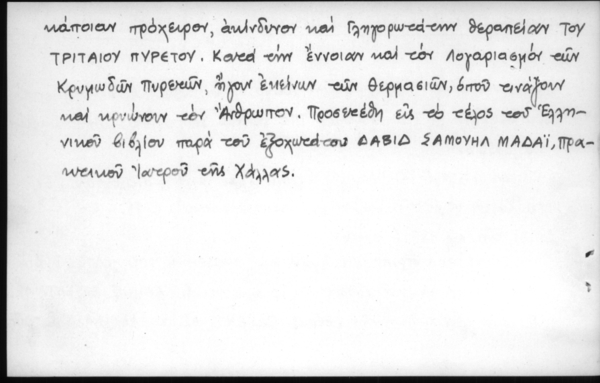 κάποιαν πρόχειρον, ἀκίνδυνον καὶ Γληγορωτάτην θεραπείαν ΤΟΥ
ΤΡΙΤΑΙΟΥ ΠΥΡΕΤΟΥ. Κατὰ τὴν ἔννοιαν καὶ τὸν Λογαριασμὸν τῶν
Κρυμωδῶν Πυρετῶν, ἤγουν ἐκείνων τῶν Θερμασιῶν, ὁποῦ τινάζουν
καὶ κρυώνουν τὸν Ἄνθρωπον. Προσετέθη εἰς τὸ τέλος τοῦ Ἑλλη-
νικοῦ βιβλίου παρὰ τοῦ ἐξοχωτάτου ΔΑΒΙΔ ΣΑΜΟΥΗΛ ΜΑΔΑΪ, Πρα-
κτικοῦ Ἰατροῦ τῆς Χάλλας.